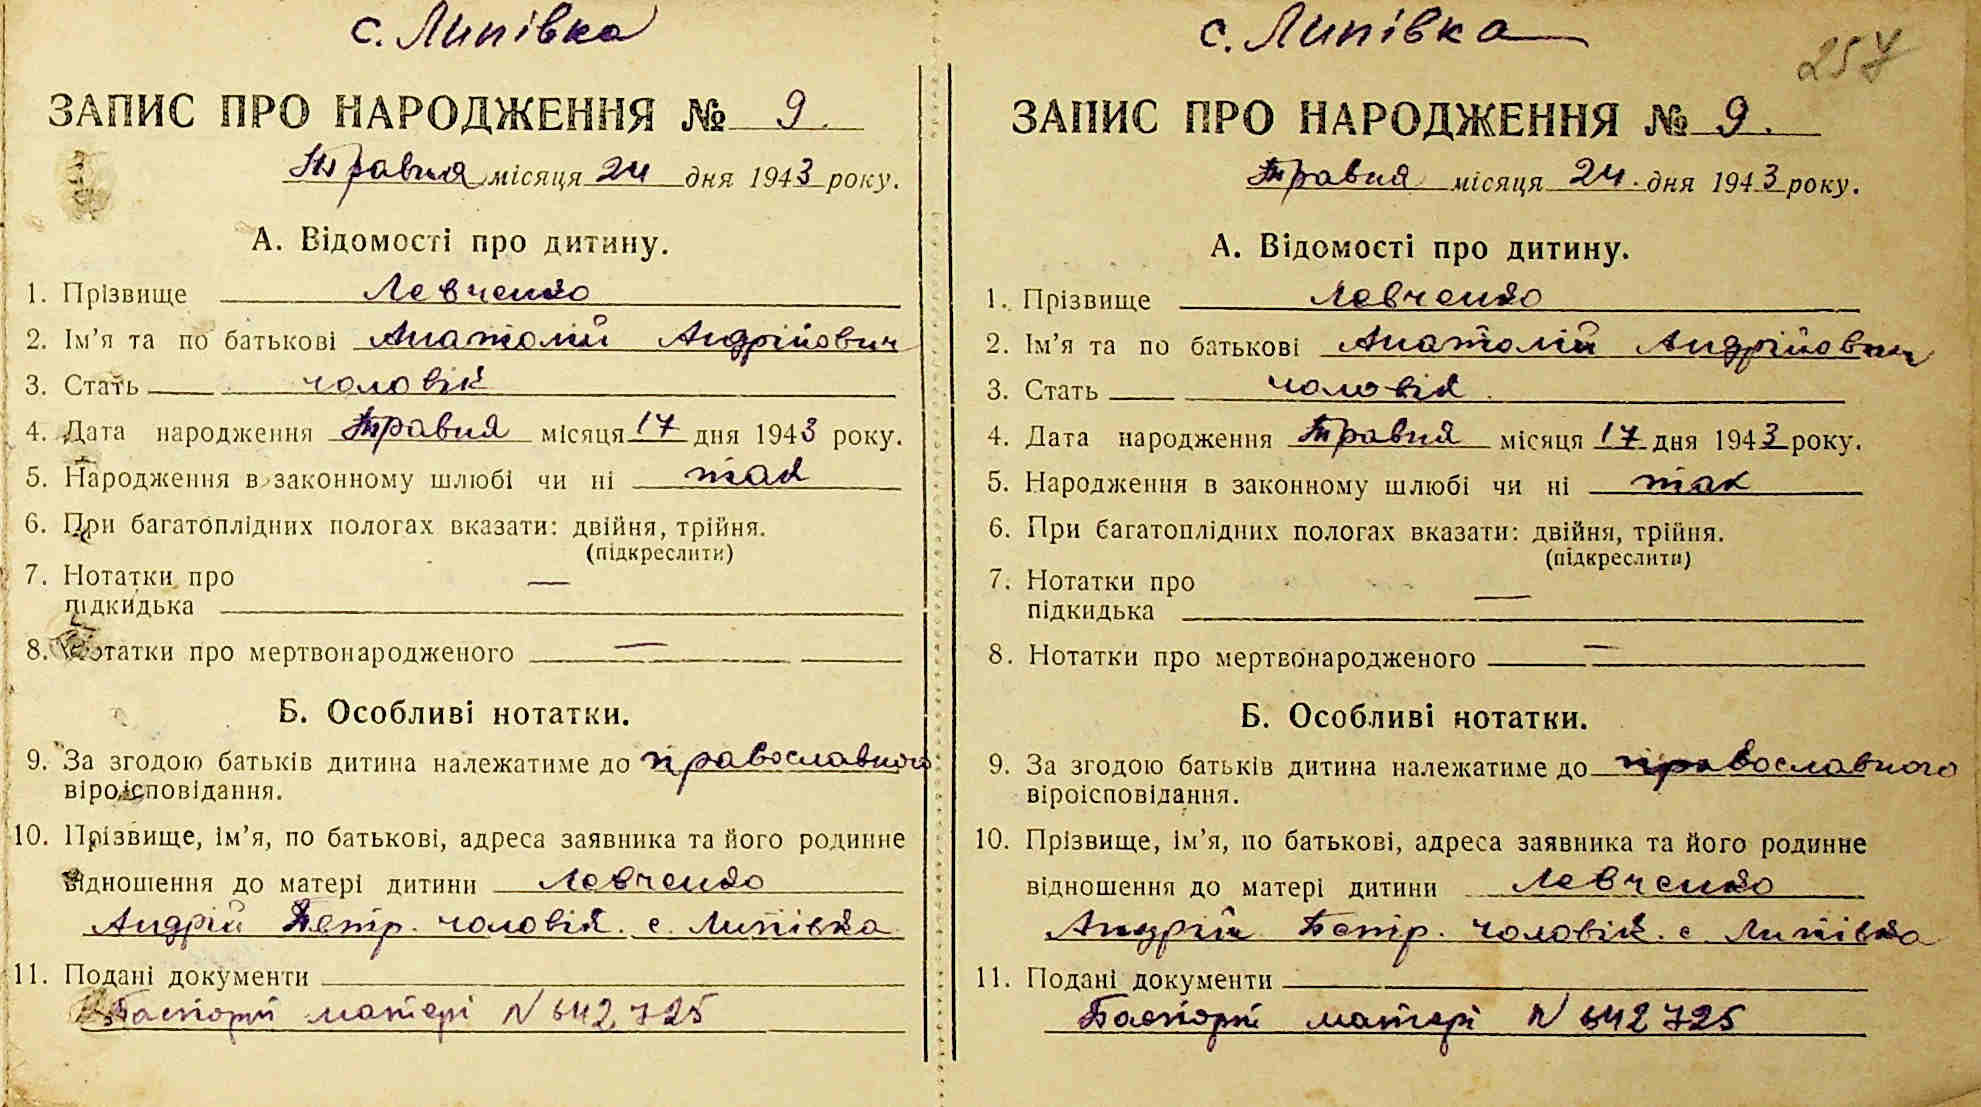 с. Липівка
ЗАПИС ПРО НАРОДЖЕННЯ № 9.
Травня місяця 24 дня 1943 року.
А. Відомості про дитину.
1. Прізвище Левченко
2. Ім'я та по батькові Анатолій Андрійович
3. Стать чоловік
4. Дата народження Травня місяця 17 дня 1943 року.
5. Народження в законному шлюбі чи ні так
6. При багатоплідних пологах вказати: двійня, трійня.
(підкреслити)
7. Нотатки про —
підкидька
8. Нотатки про мертвонародженого —
Б. Особливі нотатки.
9. За згодою батьків дитина належатиме до православного
віроісповідання.
10. Прізвище, ім'я, по батькові, адреса заявника та його родинне
відношення до матері дитини Левченко
Андрій Петр. чоловік. с. Липівка
11. Подані документи
Паспорт матері N 642725
с. Липівка
257
ЗАПИС ПРО НАРОДЖЕННЯ № 9.
Травня місяця 24. дня 1943 року.
А. Відомості про дитину.
1. Прізвище Левченко
2. Ім'я та по батькові Анатолій Андрійович
3. Стать чоловік
4. Дата народження Травня місяця 17 дня 1943 року.
5. Народження в законному шлюбі чи ні так
6. При багатоплідних пологах вказати: двійня, трійня.
(підкреслити)
7. Нотатки про —
підкидька
8. Нотатки про мертвонародженого —
Б. Особливі нотатки.
9. За згодою батьків дитина належатиме до православного
віроісповідання.
10. Прізвище, ім'я, по батькові, адреса заявника та його родинне
відношення до матері дитини Левченко
Андрій Петр. чоловік. с Липівка
11. Подані документи
Паспорт матері N 642725